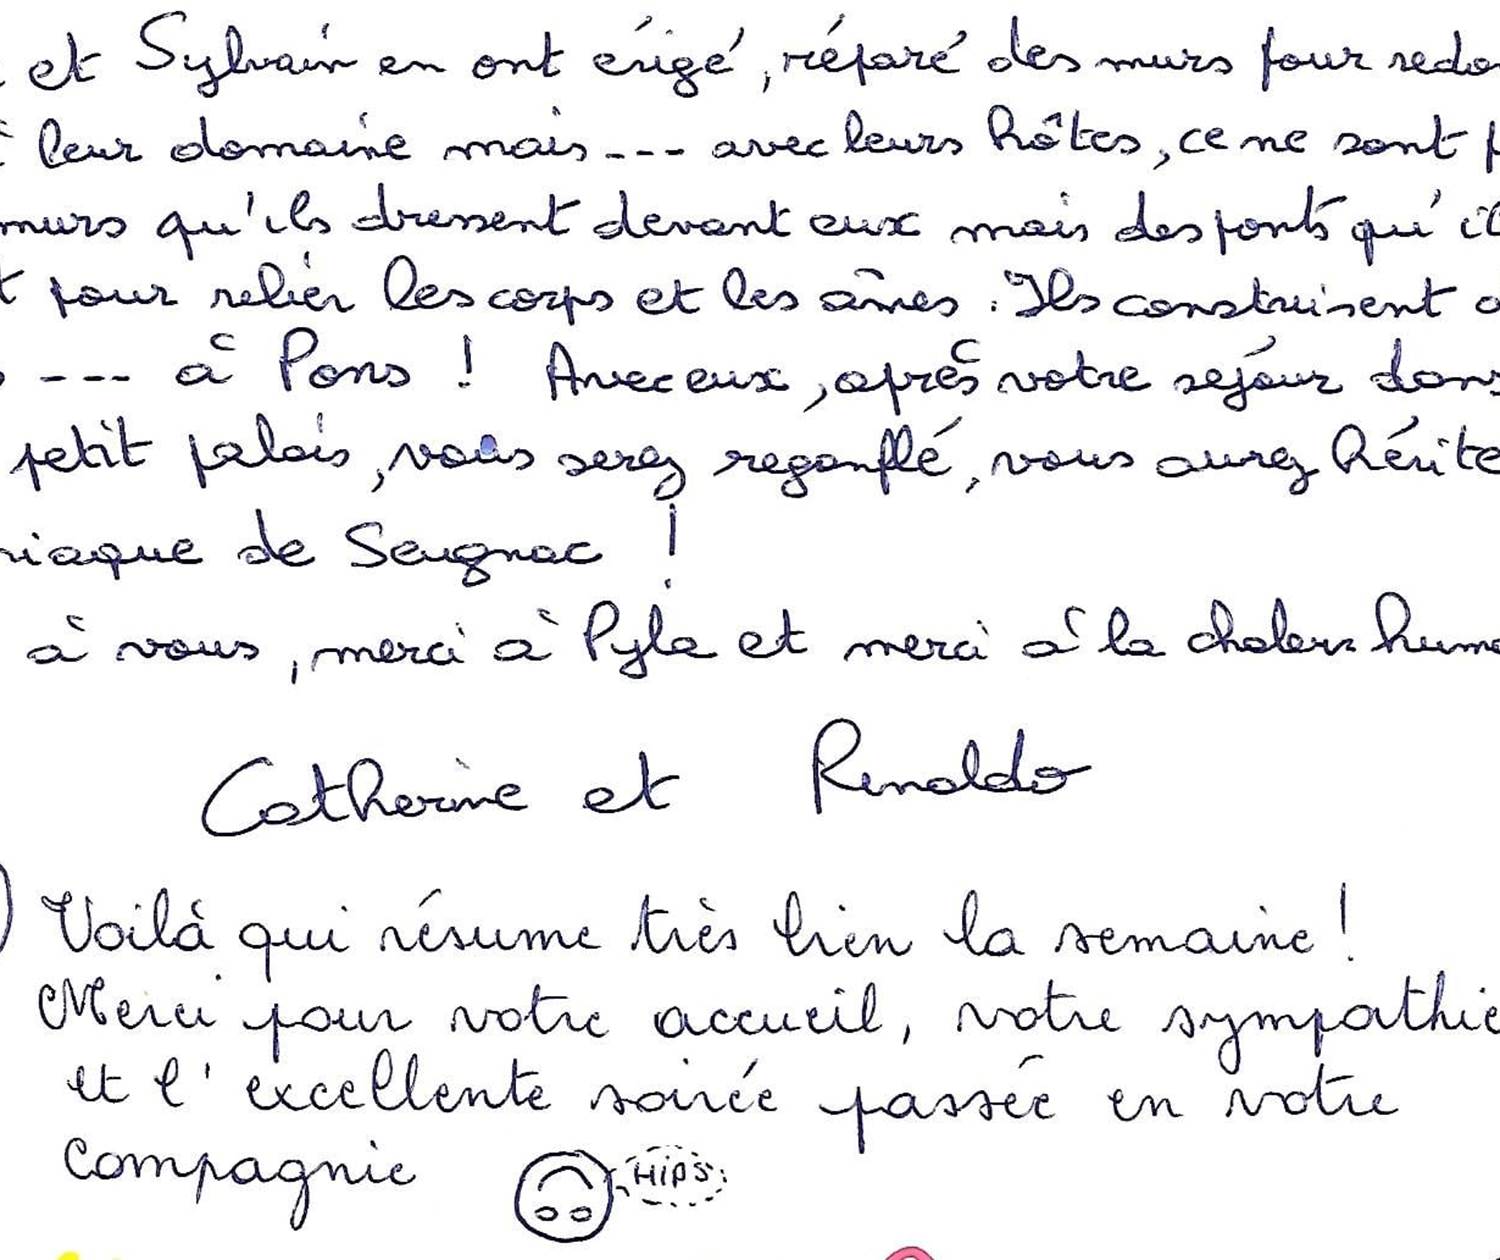 et Sylvain en ont érigé, réparé des murs pour redo
à leur domaine mais --- avec leurs hôtes, ce ne sont p
murs qu'ils dressent devant eux mais des ponts qu'il
t pour relier les corps et les âmes. Ils construisent d
--- à Pons ! Avec eux, après votre séjour dans
petit palais, vous serez regonflé, vous aurez hérité
niaque de Seugnac !
à vous, merci à Pyla et merci à la chaleur huma
Catherine et Renaldo
Voilà qui résume très bien la semaine !
Merci pour votre accueil, votre sympathie
et l'excellente soirée passée en votre
compagnie HiPS